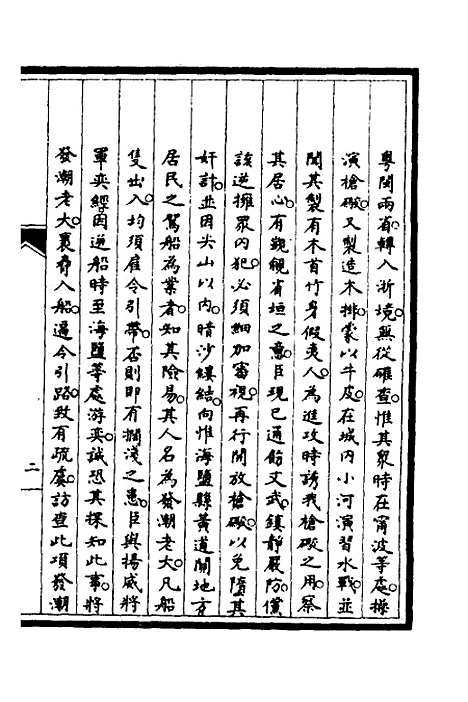 粵閩兩省。轉入浙境。無從確查。惟其衆時在甯波等處。操
演槍礮。又製造木排。蒙以牛皮。在城內小河演習水戰。並
聞其製有木首竹身假夷人。為進攻時誘我槍礮之用。察
其居心。有覬覦省垣之意。臣現已通飭文武。鎮靜嚴防。儻
該逆擁眾內犯。必須細加審視。再行開放槍礮。以免墮其
奸計。並因尖山以內。暗沙縷結。向惟海鹽縣黃道關地方
居民之駕船為業者。知其險易。其人名為發潮老大。凡船
隻出入。均須雇令引帶。否則即有擱淺之患。臣與揚威將
軍奕經。因逆船時至海鹽等處游奕。誠恐其探知此事。將
發潮老大裹脅入船。逼令引路。致有疏虞。訪查此項發潮
二